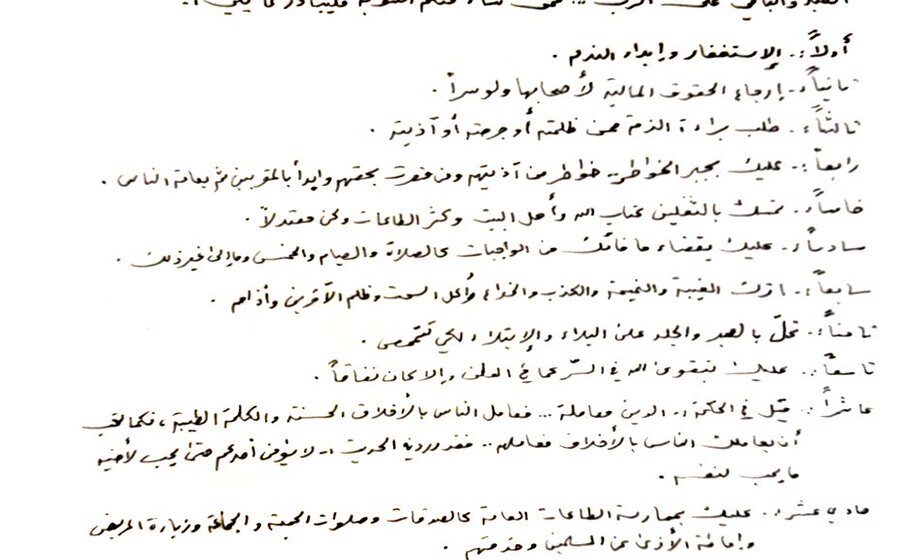 العبد والباقي على الرب ... فمن شاء منكم التوبة فليبادر لما يلي :-
أولاً :- الإستغفار وإبداء الندم .
ثانياً :- إرجاع الحقوق المالية لأصحابها ولو سراً .
ثالثاً :- طلب براءة الذمة ممن ظلمته أو جرحته أو آذيته .
رابعاً :- عليك بجبر الخواطر - خواطر من آذيتهم ومن قصرت بحقهم وابدأ بالمقربين ثم بعامة الناس .
خامساً :- تمسك بالثقلين كتاب الله وأهل البيت وكثر الطاعات وكن معتدلاً .
سادساً :- عليك بقضاء ما فاتك من الواجبات كالصلاة والصيام والخمس وما إلى غير ذلك .
سابعاً :- اترك الغيبة والنميمة والكذب والخداع وأكل السحت وظلم الآخرين وأذاهم .
ثامناً :- تحلّ بالصبر والجلد على البلاء والإبتلاء لكي تتمحص .
تاسعاً :- عليك بتقوى الله في السّر كما في العلن وإلا كان نفاقاً .
عاشراً :- قيل في الحكمة :- الدين معاملة ... فعامل الناس بالأخلاق الحسنة والكلمة الطيبة ، فكما تحب
أن يعاملك الناس بالأخلاق فعاملهم .. فقد ورد في الحديث :- لا يؤمن أحدكم حتى يحب لأخيه
ما يحب لنفسه .
حادي عشر :- عليك بممارسة الطاعات العامة كالصدقات وصلوات الجمعة والجماعة وزيارة المريض
وإماطة الأذى عن المسلمين وخدمتهم .